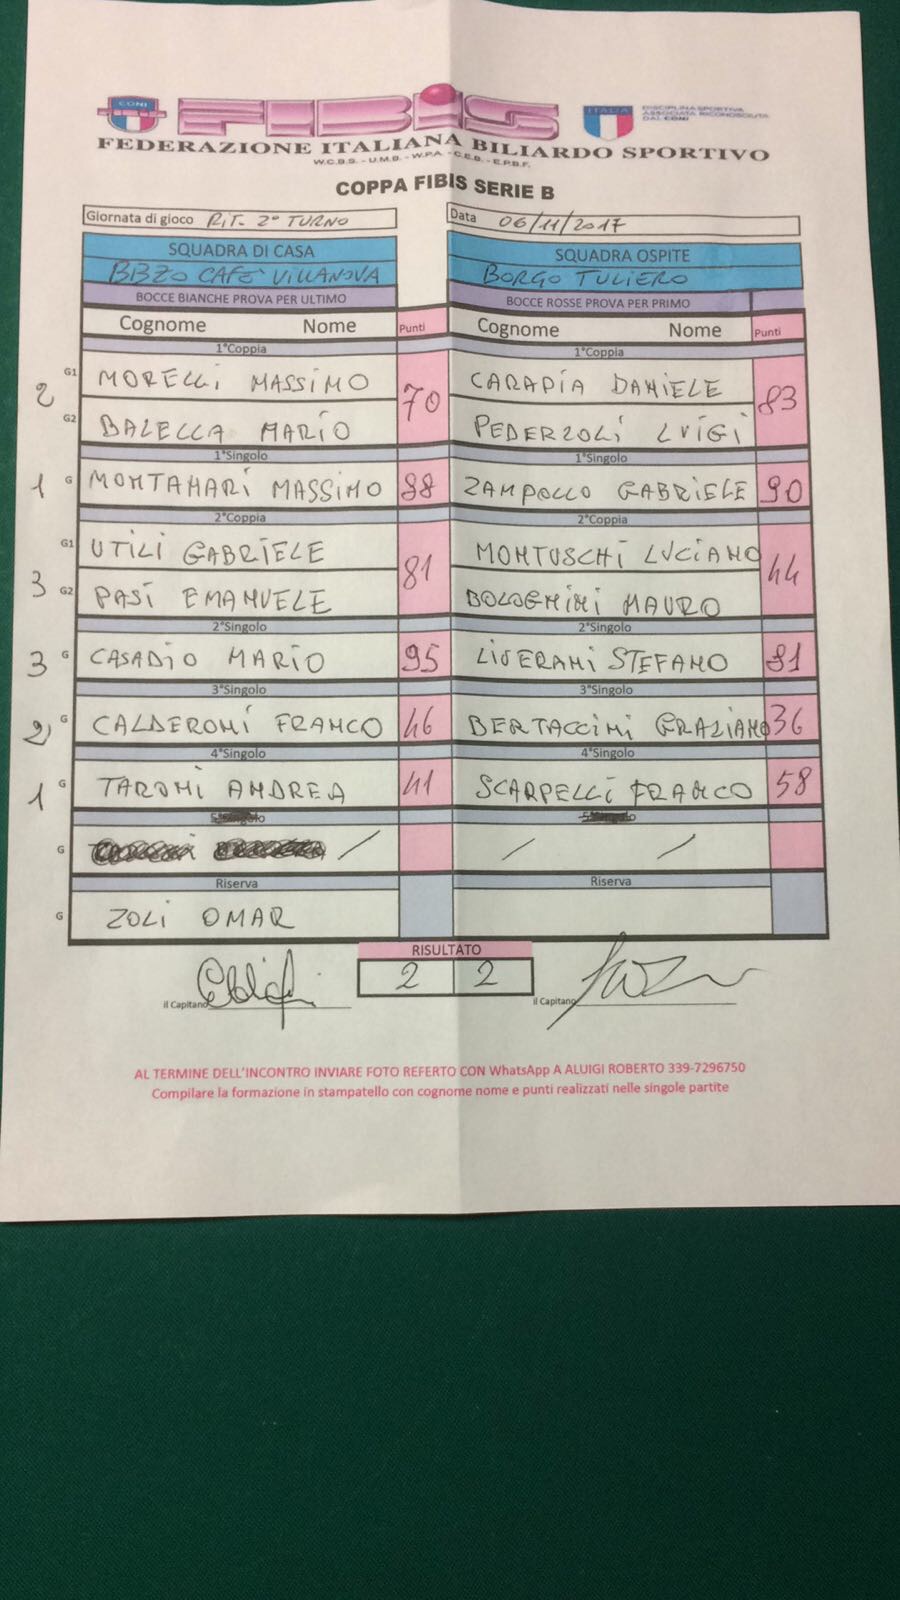 CONI
FIBiS
ITALIA
DISCIPLINA SPORTIVA
ASSOCIATA RICONOSCIUTA
DAL CONI
FEDERAZIONE ITALIANA BILIARDO SPORTIVO
W.C.B.S. - U.M.B. - W.P.A. - C.E.B. - E.P.B.F.
COPPA FIBIS SERIE B
Giornata di gioco RIT. 2° TURNO Data 06/11/2017
SQUADRA DI CASA SQUADRA OSPITE
BBZO CAFE' VILLANOVA BORGO TULIERO
BOCCE BIANCHE PROVA PER ULTIMO BOCCE ROSSE PROVA PER PRIMO
Cognome Nome Punti Cognome Nome Punti
1°Coppia 1°Coppia
2 G1 MORELLI MASSIMO 70 CARAPIA DANIELE 83
G2 BALELLA MARIO PEDERZOLI LUIGI
1°Singolo 1°Singolo
1 G MONTANARI MASSIMO 88 ZAMPOLLO GABRIELE 90
2°Coppia 2°Coppia
G1 UTILI GABRIELE 81 MONTUSCHI LUCIANO 44
3 G2 PASI EMANUELE BOLOGNINI MAURO
2°Singolo 2°Singolo
3 G CASADIO MARIO 95 LIVERANI STEFANO 81
3°Singolo 3°Singolo
2 G CALDERONI FRANCO 46 BERTACCINI GRAZIANO 36
4°Singolo 4°Singolo
1 G TARONI ANDREA 41 SCARPELLI FRANCO 58
G / / /
Riserva Riserva
G ZOLI OMAR
RISULTATO
2 2
il Capitano il Capitano
AL TERMINE DELL'INCONTRO INVIARE FOTO REFERTO CON WhatsApp A ALUIGI ROBERTO 339-7296750
Compilare la formazione in stampatello con cognome nome e punti realizzati nelle singole partite